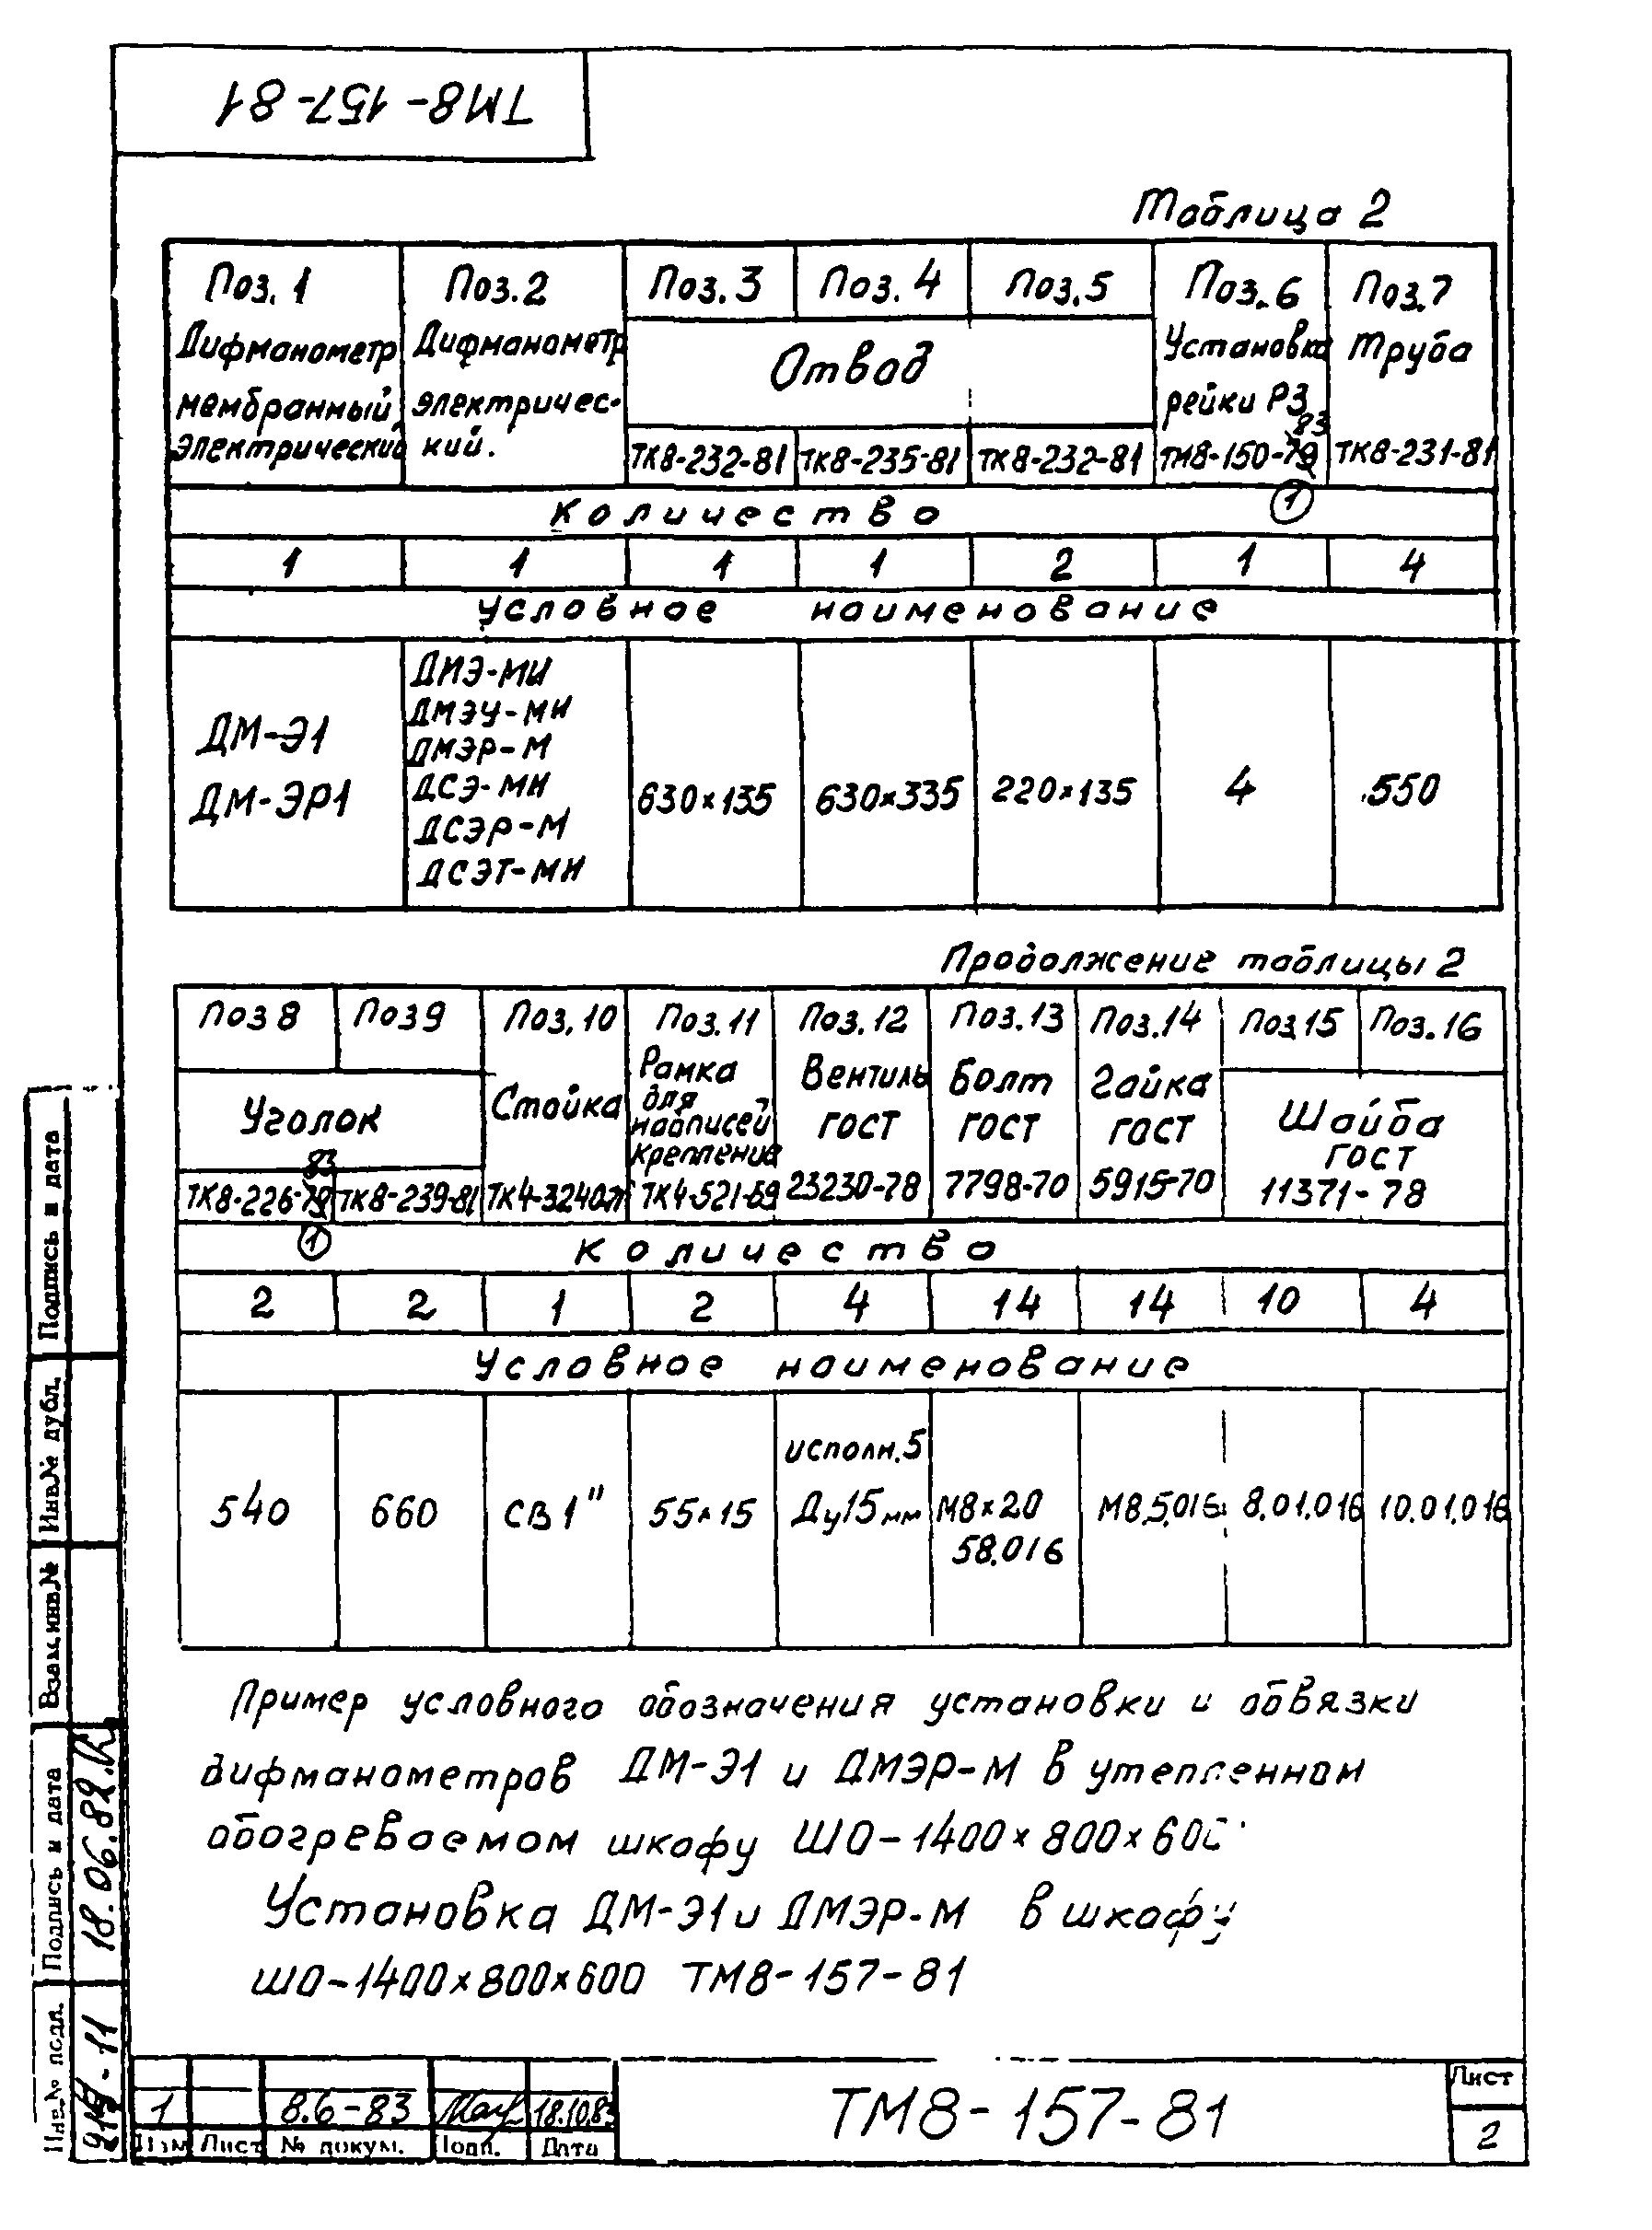 ТМ8-157-81
Таблица 2
Поз. 1 Поз. 2 Поз. 3 Поз. 4 Поз. 5 Поз. 6 Поз. 7
Дифманометр мембранный электрический
Дифманометр электричес-
кий.
Отвод
Установка рейки РЗ
Труба
ТК8-232-81 ТК8-235-81 ТК8-232-81 ТМ8-150-79 83 ТК8-231-81
1
Количество
1 1 1 1 2 1 4
Условное наименование
ДМ-Э1
ДМ-ЭР1
ДИЭ-МИ
ДМЭУ-МИ
ДМЭР-М
ДСЭ-МИ
ДСЭР-М
ДСЭТ-МИ
630×135 630×335 220×135 4 550
Продолжение таблицы 2
Поз 8 Поз 9 Поз. 10 Поз. 11 Поз. 12 Поз. 13 Поз. 14 Поз 15 Поз. 16
Уголок
Стойка
Рамка
для
надписей
крепление
Вентиль
ГОСТ
23230-78
Болт
ГОСТ
7798-70
Гайка
ГОСТ
5915-70
Шайба
ГОСТ
11371-78
ТК8-226-79 83 ТК8-239-81 ТК4-521-69
1
Количество
2 2 1 2 4 14 14 10 4
Условное наименование
540 660 СВ 1" 55×15
исполн. 5
Ду 15 мм
М8×20
58.016
М8.5.016 8.01.016 10.01.016
Пример условного обозначения установки и обвязки
дифманометров ДМ-Э1 и ДМЭР-М в утепленном
обогреваемом шкафу ШО-1400×800×600
Установка ДМ-Э1 и ДМЭР-М в шкафу
ШО-1400×800×600 ТМ8-157-81
Подпись и дата
Инв.№ дубл.
Взам.инв.№
Подпись и дата
18.06.82
Инв.№ подл.
1 8.6-83 18.10.83
Изм Лист № докум. Подп. Дата
ТМ8-157-81
Лист
2